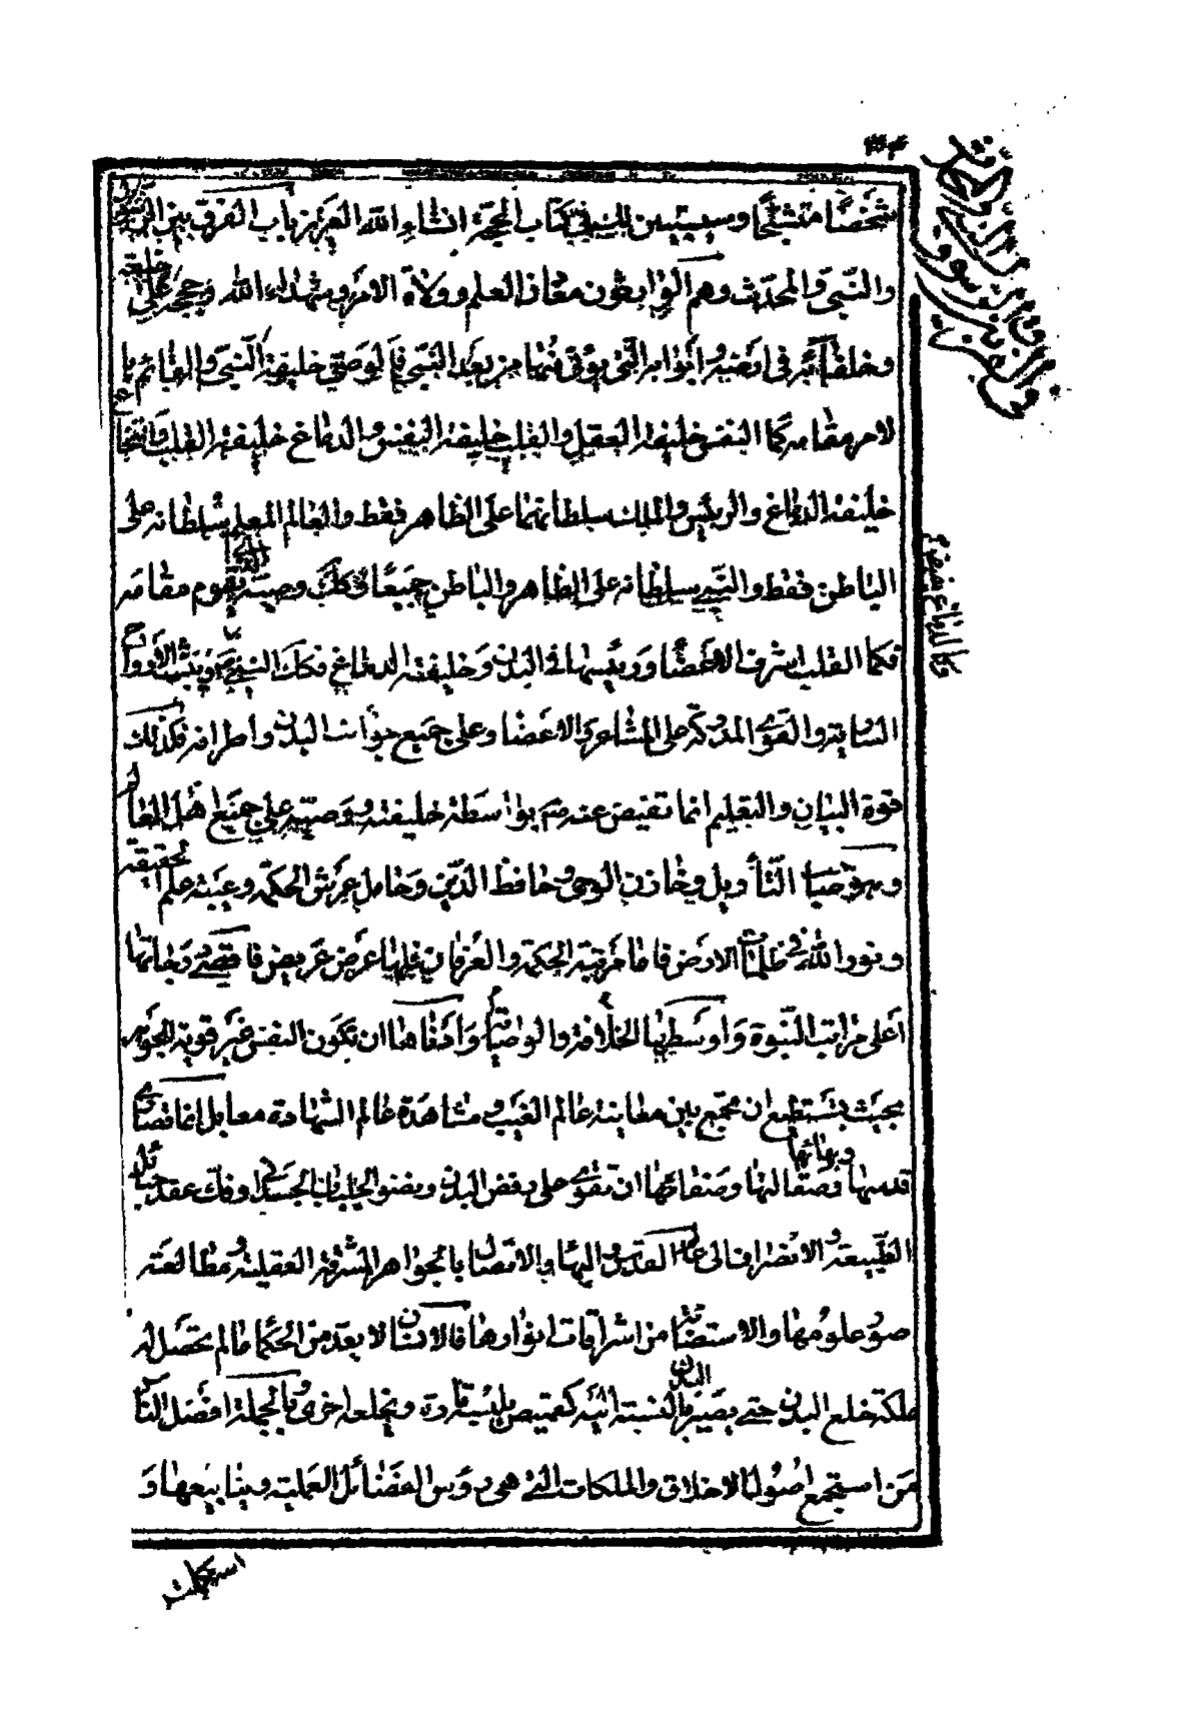 شخصا متشبحا وسيتبين لك في كتاب الحجة انشاء الله العزيز باب الفرق بين الرسول
والنبي والمحدث وهم الوابعون معادن العلم وولاة الامر وشهداء الله وحججه على خلقه
وخلفائه في ارضه وابوابه التي يؤتى منها من بعد النبي فالوصي خليفة النبي والقائم با
لامر مقامه كما النفس خليفة العقل والقلب خليفة النفس والدماغ خليفة القلب والنخاع
خليفة الدماغ والرئيس والملك سلطانهما على الظاهر فقط والعالم المعلم سلطانه على
الباطن فقط والنبي سلطانه على الظاهر والباطن جميعا وكذلك وصيه الذي يقوم مقامه
فكما القلب اشرف الاعضا ورئيسها في البدن وخليفته الدماغ فكذلك النبي وينبث الارواح
السارية والقوى المدركة على المشاعر والاعضا وعلى جميع جوانب البدن واطرافه فكذلك
قوة البيان والتعليم انما تفيض عنه ص بواسطة خليفته ووصيه على جميع اهل العالم
وهو ضيا التأويل وخازن الوحي وحافظ الدين وحامل عرش الحكمة وعيبة علم الحقيقة
ونور الله في ظلمات الارض فاما مرتبة الحكمة والعرفان فلها عرض عريض فاقصى درجاتها
اعلى مراتب النبوة واوسطها الخلافة والوصاية وادناها ان تكون النفس غير قوية الجوهر
بحيث يستطيع ان يجمع بين مطابنة عالم الغيب ومشاهدة عالم الشهادة معا بل انما قصارى
قدسها وصقالتها وبهائها وصفائها ان تقوى على رفض البدن ونضو الجلباب الجسداني وفك عقد حبائل
الطبيعة والانصراف الى عالم القدس والبهاء والاتصال بالجواهر المشرقة العقلية ومطالعة
صور علومها والاستضائة من اشراقات انوارها فالانسان لا يعد من الحكما ما لم يحصل له
ملكة خلع البدن حتى يصير البدن بالنسبة اليه كقميص يلبسه تارة ويخلعه اخرى وبالجملة افضل الناس
من استجمع اصول الاخلاق والملكات التي هي رؤس الفضائل العملية وينابيعها و
وكما الدماغ فيض